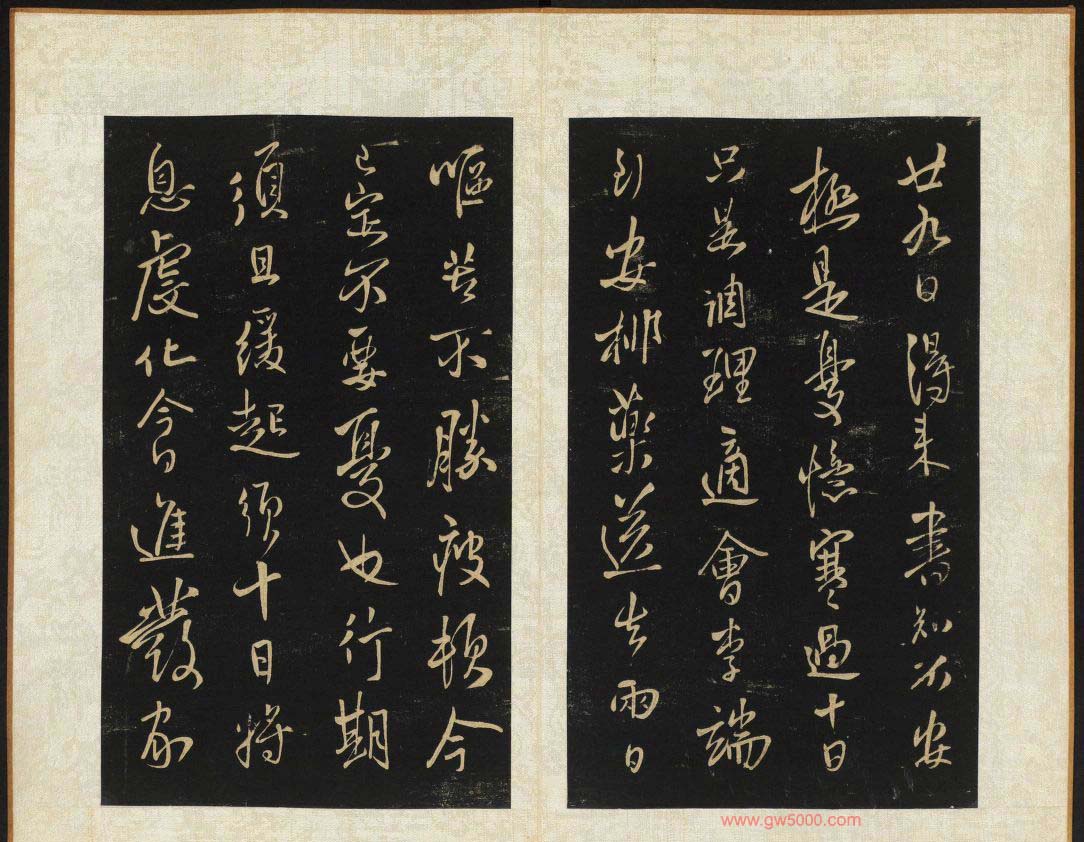 廿九日得来書知不安
極是憂憶寒過十日
只是調理適會李端
到安柳藥送去兩日
嘔苦不勝疲頓今
已定不要憂也行期
須且緩起須十日將
息處化今日進發家
www.gw5000.com